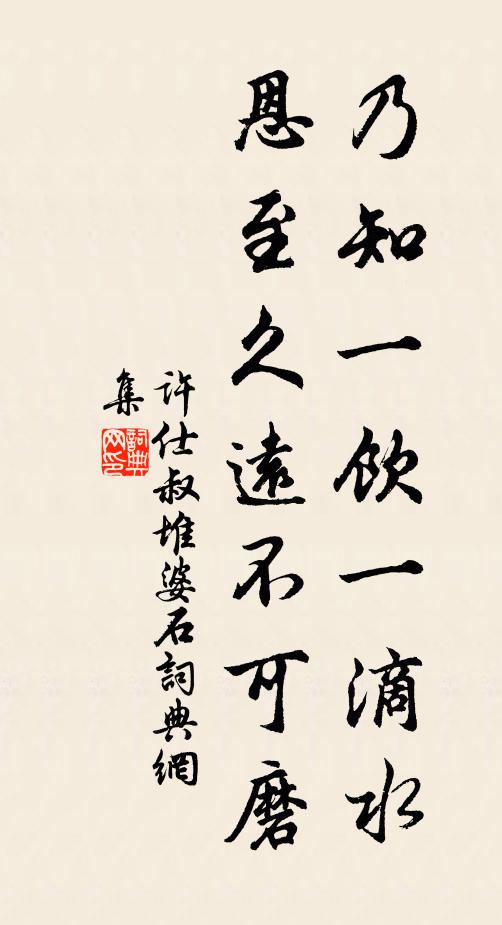 乃知一飲一滴水
恩至久遠不可磨
許仕叔堆婆石詞典網
集
詞典网印